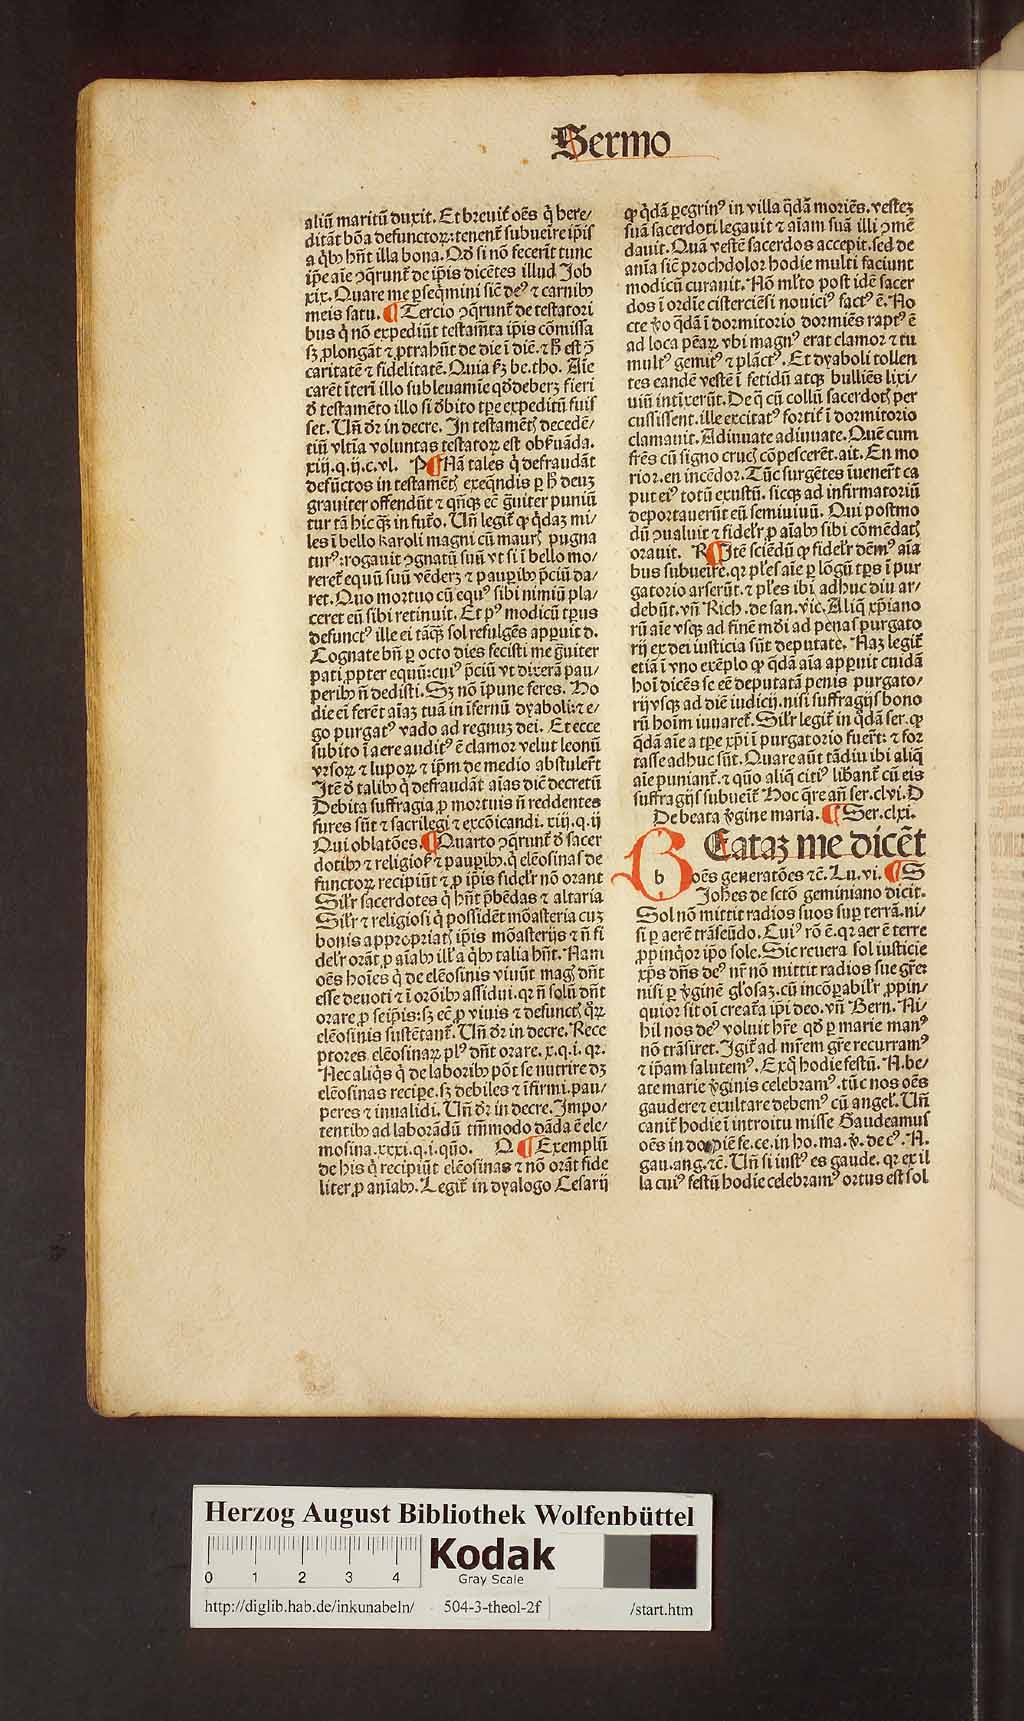 Sermo
aliū maritū duxit. Et breuit̄ oēs q̄ here/
ditāt bōa defunctoꝝ: tenent̄ subueire ip̄is
a q̄bꝫ hn̄t illa bona. Qd̓ si nō fecerīt tunc
ip̄e aīe ꝯq̄runt̄ de ip̄is dicētes illud Job
xix. Quare me ꝑseq̄mini sic̄ deꝰ ⁊ carnibꝫ
meis satu. ¶ Tercio ꝯq̄runt̄ de testatori
bus q̄ nō expediūt testam̄ta ip̄is cōmissa
sꝫ ꝓlongāt ⁊ ꝓtrahūt de die ī diē. ⁊ h̄ est ꝯ̄
caritatē ⁊ fidelitatē. Quia ſꝫ be. tho. Aīe
carēt īterī illo subleuamīe qd̓deberꝫ fieri
d̓ testamēto illo si d̓bito tꝑe expeditū fuis
set. Un̄ dr̄ in decre. In testamētꝭ decedē/
tiū vltīa voluntas testatoꝝ est obẜuāda.
xiij. q. ij. c. vl. P ¶ Nā tales q̄ defraudāt
defūctos in testamētꝭ exeq̄ndis ꝑ h̄ deuꝫ
grauiter offendūt ⁊ qn̄qꝫ ec̄ ḡuiter puniū
tur tā hic qꝫ in fut̄o. Un̄ legit̄ ꝙ q̄daꝫ mi/
les ī bello karoli magni cū maurꝭ pugna
turꝰ: rogauit ꝯgnatū suū vt si ī bello mo/
reret̄ equū suū vēderꝫ ⁊ pauꝑibꝫ p̄ciū da/
ret. Quo mortuo cū equꝰ sibi nimiū pla/
ceret eū sibi retinuit. Et pꝰ modicū tꝑus
defunctꝰ ille ei tāqꝫ sol refulgēs apꝑuit d.
Cognate bn̄ ꝑ octo dies fecisti me ḡuiter
pati ꝓpter equū: cuiꝰ p̄ciū vt dixerā pau/
peribꝫ n̄ dedisti. Sꝫ nō īpune feres. Ho
die ei ferēt aīaꝫ tuā in īfernū dyaboli: ⁊ e/
go purgatꝰ vado ad regnuꝫ dei. Et ecce
subito ī aere auditꝰ ē clamor velut leonū
vrsoꝝ ⁊ lupoꝝ ⁊ ip̄m de medio abstuler̄t
Itē d̓ talibꝫ q̄ defraudāt aīas dic̄ decretū
Debita suffragia ꝓ mortuis n̄ reddentes
fures sūt ⁊ sacrilegi ⁊ excōicandi. xiij. q. ij
Qui oblatōes. ¶ Quarto ꝯq̄runt̄ d̓ sacer
dotibꝫ ⁊ religiosꝭ ⁊ pauꝑibꝫ. q̄ eleōsinas de
functoꝝ recipiūt ⁊ ꝓ ip̄is fidelr̄ nō orant
Silr̄ sacerdotes q̄ hn̄t p̄bēdas ⁊ altaria
Silr̄ ⁊ religiosi q̄ possidēt mōasteria cuꝫ
bonis appropriatꝭ ip̄is mōasterijs ⁊ n̄ fi
delr̄ orāt ꝓ aīabꝫ ill̓ a q̄bꝫ talia hn̄t. Nam
oēs hoīes q̄ de eleōsinis viuūt magꝭ dn̄t
esse deuoti ⁊ ī orōibꝫ assidui. qr n̄ solū dn̄t
orare ꝓ seip̄is: sꝫ ec̄ ꝓ viuis ⁊ defunctꝭ qꝝ
eleōsinis sustētant̄. Un̄ dr̄ in decre. Rece
ptores eleōsinaꝝ plꝰ dn̄t orare. x. q. i. qr.
Nec aliq̄s q̄ de laboribꝫ pōt se nutrire dꝫ
eleōsinas reciꝑe. sꝫ debiles ⁊ īfirmi. pau/
peres ⁊ inualidi. Un̄ dr̄ in decre. Impo/
tentibꝫ ad laborādū tm̄modo dāda ē ele/
mosina. xxxi. q. i. quo. Q ¶ Exemplū
de his q̄ recipiūt eleōsinas ⁊ nō orāt fide
liter ꝓ aniabꝫ. Legit̄ in dyalogo Cesarij
ꝙ q̄dā ꝑegrinꝰ in villa q̄dā moriēs. vesteꝫ
suā sacerdoti legauit ⁊ aīam suā illi ꝯmē
dauit. Quā vestē sacerdos accepit. sed de
anīa sic̄ prochdolor hodie multi faciunt
modicū curauit. Nō ml̓to post idē sacer
dos ī ordīe cisterciēsi nouiciꝰ factꝰ ē. No
cte v̓o q̄dā ī dormitorio dormiēs raptꝰ ē
ad loca pēaꝝ vbi magnꝰ erat clamor ⁊ tu
multꝰ gemitꝰ ⁊ plāctꝰ. Et dyaboli tollen
tes eandē vestē ī fetidū atqꝫ bulliēs lixi/
uiū intixerūt. De q̄ cū collū sacerdotꝭ per
cussissent. ille excitatꝰ fortit̄ ī dormitorio
clamauit. Adiuuate adiuuate. Quē cum
fr̄es cū signo crucꝭ cōpescerēt. ait. En mo
rior. en incēdor. Tūc surgētes īuener̄t ca
put eiꝰ totū exustū. sicqꝫ ad infirmatoriū
deportauerūt eū semiuiuū. Qui postmo
dū ꝯualuit ⁊ fidelr̄ ꝓ aīabꝫ sibi cōmēdatꝭ
orauit. R ¶ Itē sciēdū ꝙ fidelr̄ dēmꝰ aīa
bus subueīre. qr pl̓es aīe ꝑ lōgū tꝑs ī pur
gatorio arserūt. ⁊ pl̓es ibi adhuc diu ar/
debūt. vn̄ Rich. de san. vic. Aliq̄ xp̄iano
rū aīe vsqꝫ ad finē mūdi ad penas purgato
rij ex dei iusticia sūt deputate. Naꝫ legit̄
etiā ī vno exēplo ꝙ q̄dā aīa apꝑuit cuidā
hoī dicēs se eē deputatā penis purgato/
rij vsqꝫ ad diē iudicij. nisi suffragijs bono
rū hoīm iuuaret̄. Silr̄ legit̄ in q̄dā ser. ꝙ
q̄dā aīe a tꝑe xp̄i ī purgatorio fuer̄t: ⁊ for
tasse adhuc sūt. Quare aūt tādiu ibi aliq̄
aīe puniant̄. ⁊ quō aliq̄ citiꝰ lib̓ant̄ cū eis
suffragijs subueīt̄ Hoc q̄re an̄ ser. clvi. D
De beata v̓gine maria. ¶ Ser. clxi.
BEataꝫ me dicēt
b oēs generatōes ⁊c̄. Lu. vi. ¶ S
Johēs de sctō geminiano dicit.
Sol nō mittit radios suos suꝑ terrā. ni/
si ꝑ aerē trāseūdo. Cuiꝰ rō ē. qr aer ē terre
ꝓpinq̓or ip̄o sole. Sic reuera sol iusticie
xp̄s dn̄s deꝰ nr̄ nō mittit radios sue gr̄eꝫ
nisi ꝑ v̓ginē gl̓osaꝫ. cū incōꝑabilr̄ ꝓpin/
quior sit oī creat̄a ip̄i deo. vn̄ Bern. Ni/
hil nos deꝰ voluit hr̄e qd̓ ꝑ marie manꝰ
nō trāsiret. Igit̄ ad mr̄em gr̄e recurramꝰ
⁊ ip̄am salutemꝰ. Exq̄ hodie festū. N. be/
ate marie v̓ginis celebramꝰ. tūc nos oēs
gaudere ⁊ exultare debemꝰ cū angel̓. Un̄
canit̄ hodie ī introitu misse Gaudeamus
oēs in do diē fe. ce. in ho. ma. v̓. de cꝰ. N.
gau. ang. ⁊c̄. Un̄ si iustꝰ es gaude. qr ex il
la cuiꝰ festū hodie celebramꝰ ortus est sol
Herzog August Bibliothek Wolfenbüttel
0 1 2 3 4
Kodak
Gray Scale
http://diglib.hab.de/inkunabeln/ 504-3-theol-2f /start.htm